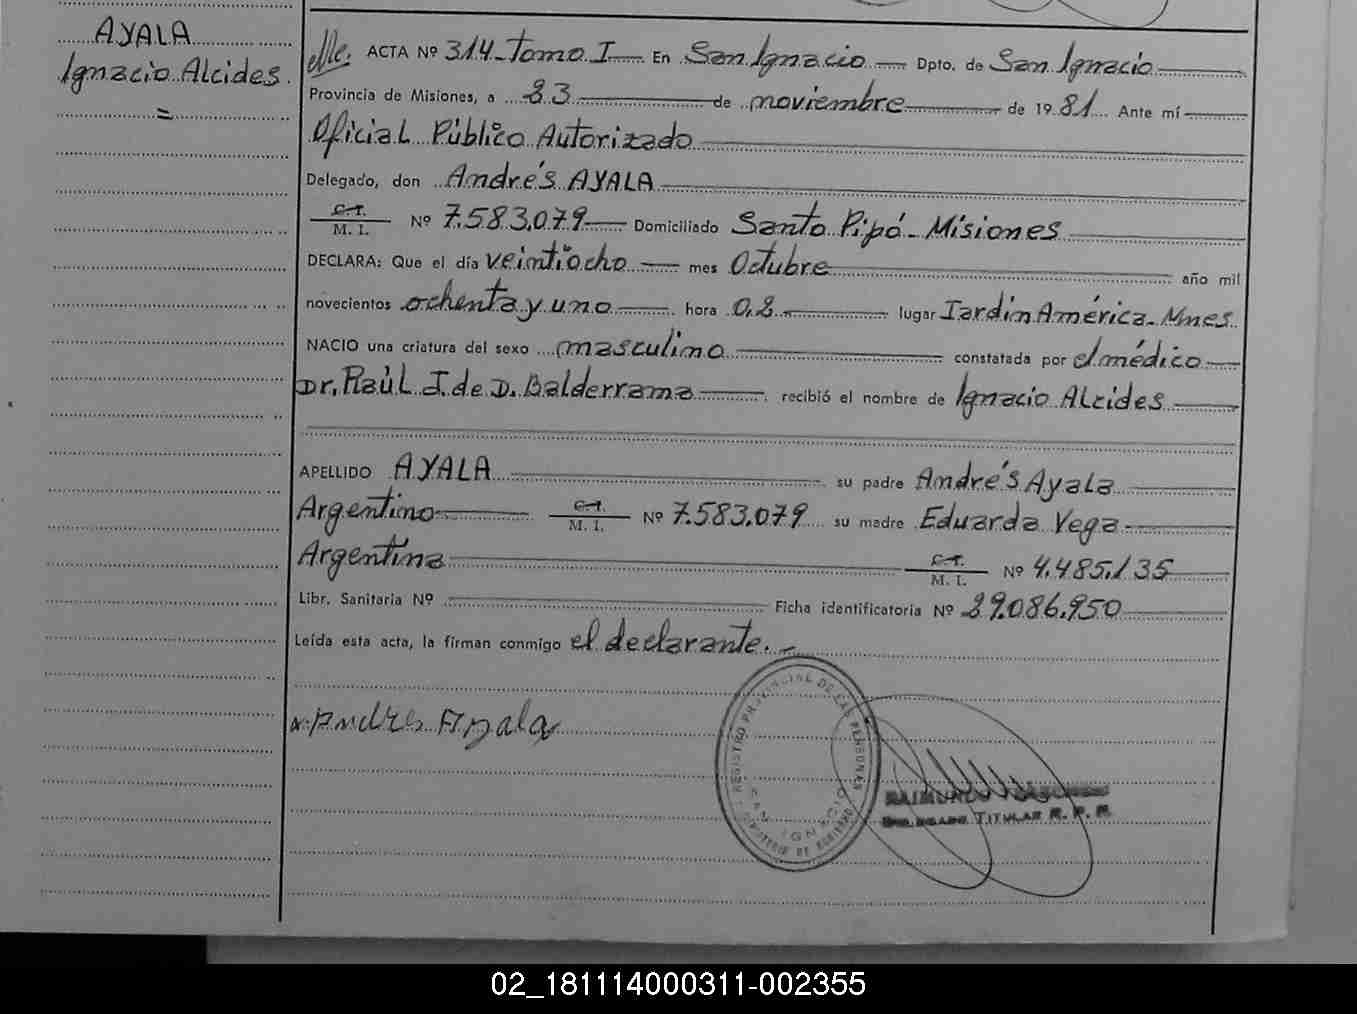 AYALA
Ignacio Alcides
=
ACTA Nº 314 - Tomo I En San Ignacio Dpto. de San Ignacio
Provincia de Misiones, a 23 de noviembre de 1981 Ante mí
Oficial Público Autorizado
Delegado, don Andrés AYALA
C.I.
M. I. Nº 7.583.079 Domiciliado Santo Pipó - Misiones
DECLARA: Que el día veintiocho mes Octubre año mil
novecientos ochenta y uno hora 02 lugar Jardín América - Mnes
NACIO una criatura del sexo masculino constatada por el médico
Dr. Raúl J. de D. Balderrama recibió el nombre de Ignacio Alcides
APELLIDO AYALA su padre Andrés Ayala
Argentino C.I. M. I. Nº 7.583.079 su madre Eduarda Vega
Argentina C.I. M. I. Nº 4.485.135
Libr. Sanitaria Nº Ficha identificatoria Nº 29.086.950
Leída esta acta, la firman conmigo el declarante.-
Andres Ayala
REGISTRO PROVINCIAL DE LAS PERSONAS
SAN IGNACIO
MINISTERIO DE GOBIERNO
RAIMUNDO
DELEGADO TITULAR R. P. P.
02_181114000311-002355